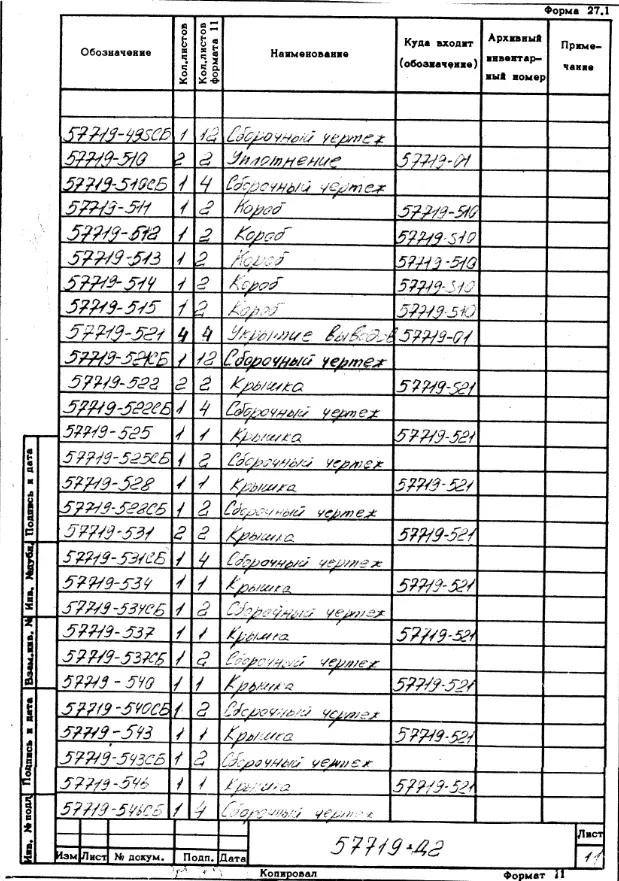 Форма 27.1
Обозначение Кол.листов Кол.листов формата 11 Наименование Куда входит (обозначение) Архивный инвентар-ный номер Приме-чание
57719-495СБ 1 12 Сборочный чертеж
57719-510 2 2 Уплотнение 57719-01
57719-510СБ 1 4 Сборочный чертеж
57719-511 1 2 Короб 57719-510
57719-512 1 2 Короб 57719-510
57719-513 1 2 Короб 57719-510
57719-514 1 2 Короб 57719-510
57719-515 1 2 Короб 57719-510
57719-521 4 4 Укрытие выводов 57719-01
57719-521СБ 1 12 Сборочный чертеж
57719-522 2 2 Крышка 57719-521
57719-522СБ 1 4 Сборочный чертеж
57719-525 1 1 Крышка 57719-521
57719-525СБ 1 2 Сборочный чертеж
57719-528 1 1 Крышка 57719-521
57719-528СБ 1 2 Сборочный чертеж
57719-531 2 2 Крышка 57719-521
57719-531СБ 1 4 Сборочный чертеж
57719-534 1 1 Крышка 57719-521
57719-534СБ 1 2 Сборочный чертеж
57719-537 1 1 Крышка 57719-521
57719-537СБ 1 2 Сборочный чертеж
57719-540 1 1 Крышка 57719-521
57719-540СБ 1 2 Сборочный чертеж
57719-543 1 1 Крышка 57719-521
57719-543СБ 1 2 Сборочный чертеж
57719-546 1 1 Крышка 57719-521
57719-546СБ 1 4 Сборочный чертеж
Подпись и дата
Инв. №дубл.
Взам.инв. №
Подпись и дата
Инв. №подл
Изм Лист № докум. Подп. Дата
57719-Д2
Лист
11
Копировал Формат 11